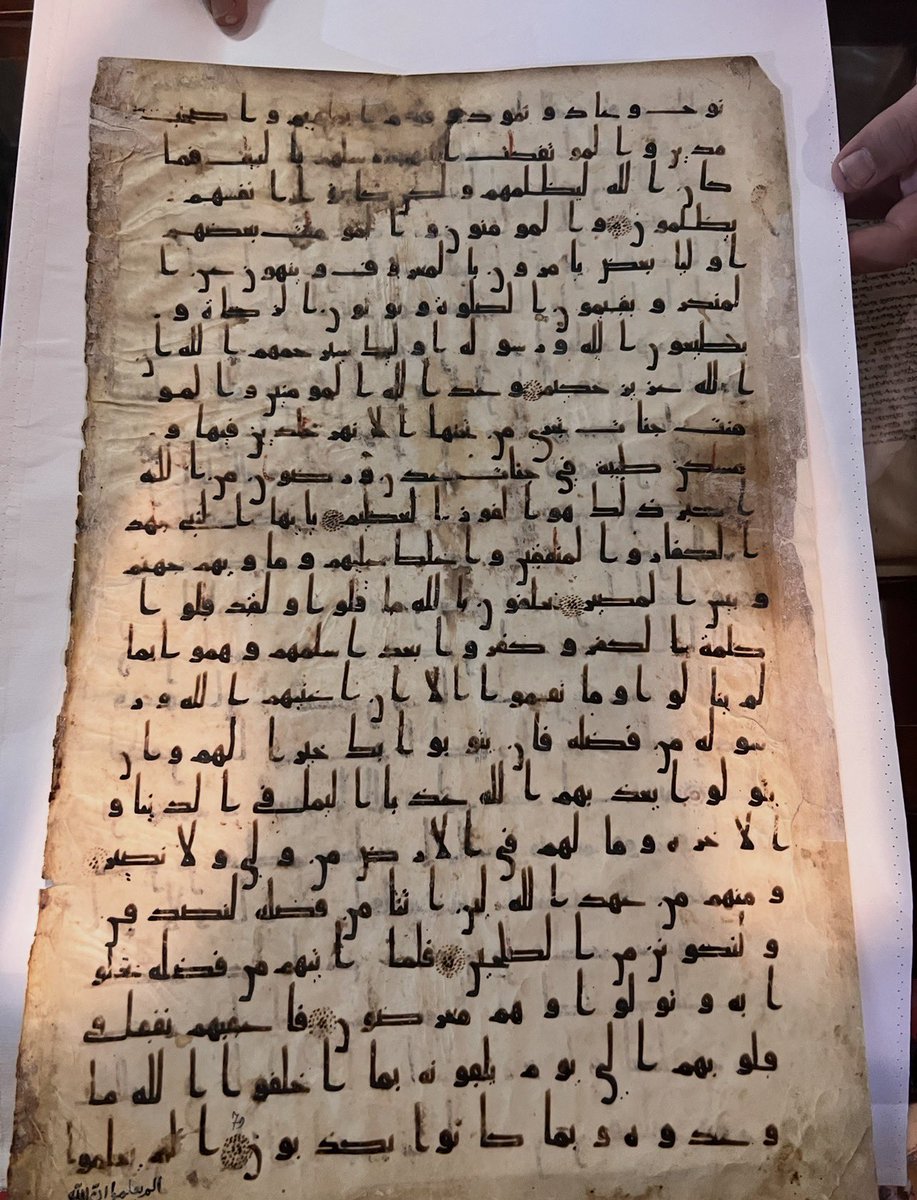 نوح وعاد وثمود وقوم ابرهيم واصحب
مدين والموتفكت اتتهم رسلهم بالبينت فما
كان الله ليظلمهم ولكن كانوا انفسهم
يظلمون والمومنون والمومنت بعضهم
اوليا بعض يامرون بالمعروف وينهون عن ا
لمنكر ويقيمون الصلوة ويوتون الزكاة و
يطيعون الله ورسوله اوليك سيرحمهم الله ان
الله عزيز حكيم وعد الله المومنين والمو
منت جنات تجري من تحتها الانهر خلدين فيها و
مسكن طيبة في جنات عدن ورضون من الله
اكبر ذلك هو الفوز العظيم يايها النبي جهد
الكفار والمنفقين واغلظ عليهم وماويهم جهنم
وبيس المصير يحلفون بالله ما قلوا ولقد قلوا
كلمة الكفر وكفروا بعد اسلمهم وهموا بما
لم ينالوا وما نقموا الا ان اغنيهم الله ور
سوله من فضله فان يتوبوا يك خيرا لهم وان
يتولوا يعذبهم الله عذابا اليما في الدنيا و
الاخره وما لهم في الارض من ولي ولا نصير
ومنهم من عهد الله لين اتنا من فضله لنصدقن
ولنكونن من الصلحين فلما اتيهم من فضله بخلو
ا به وتولوا وهم معرضون فاعقبهم نفقا في
قلوبهم الى يوم يلقونه بما اخلفوا الله ما
وعدوه وبما كانوا يكذبون الم يعلموا
الم يعلموا ان الله